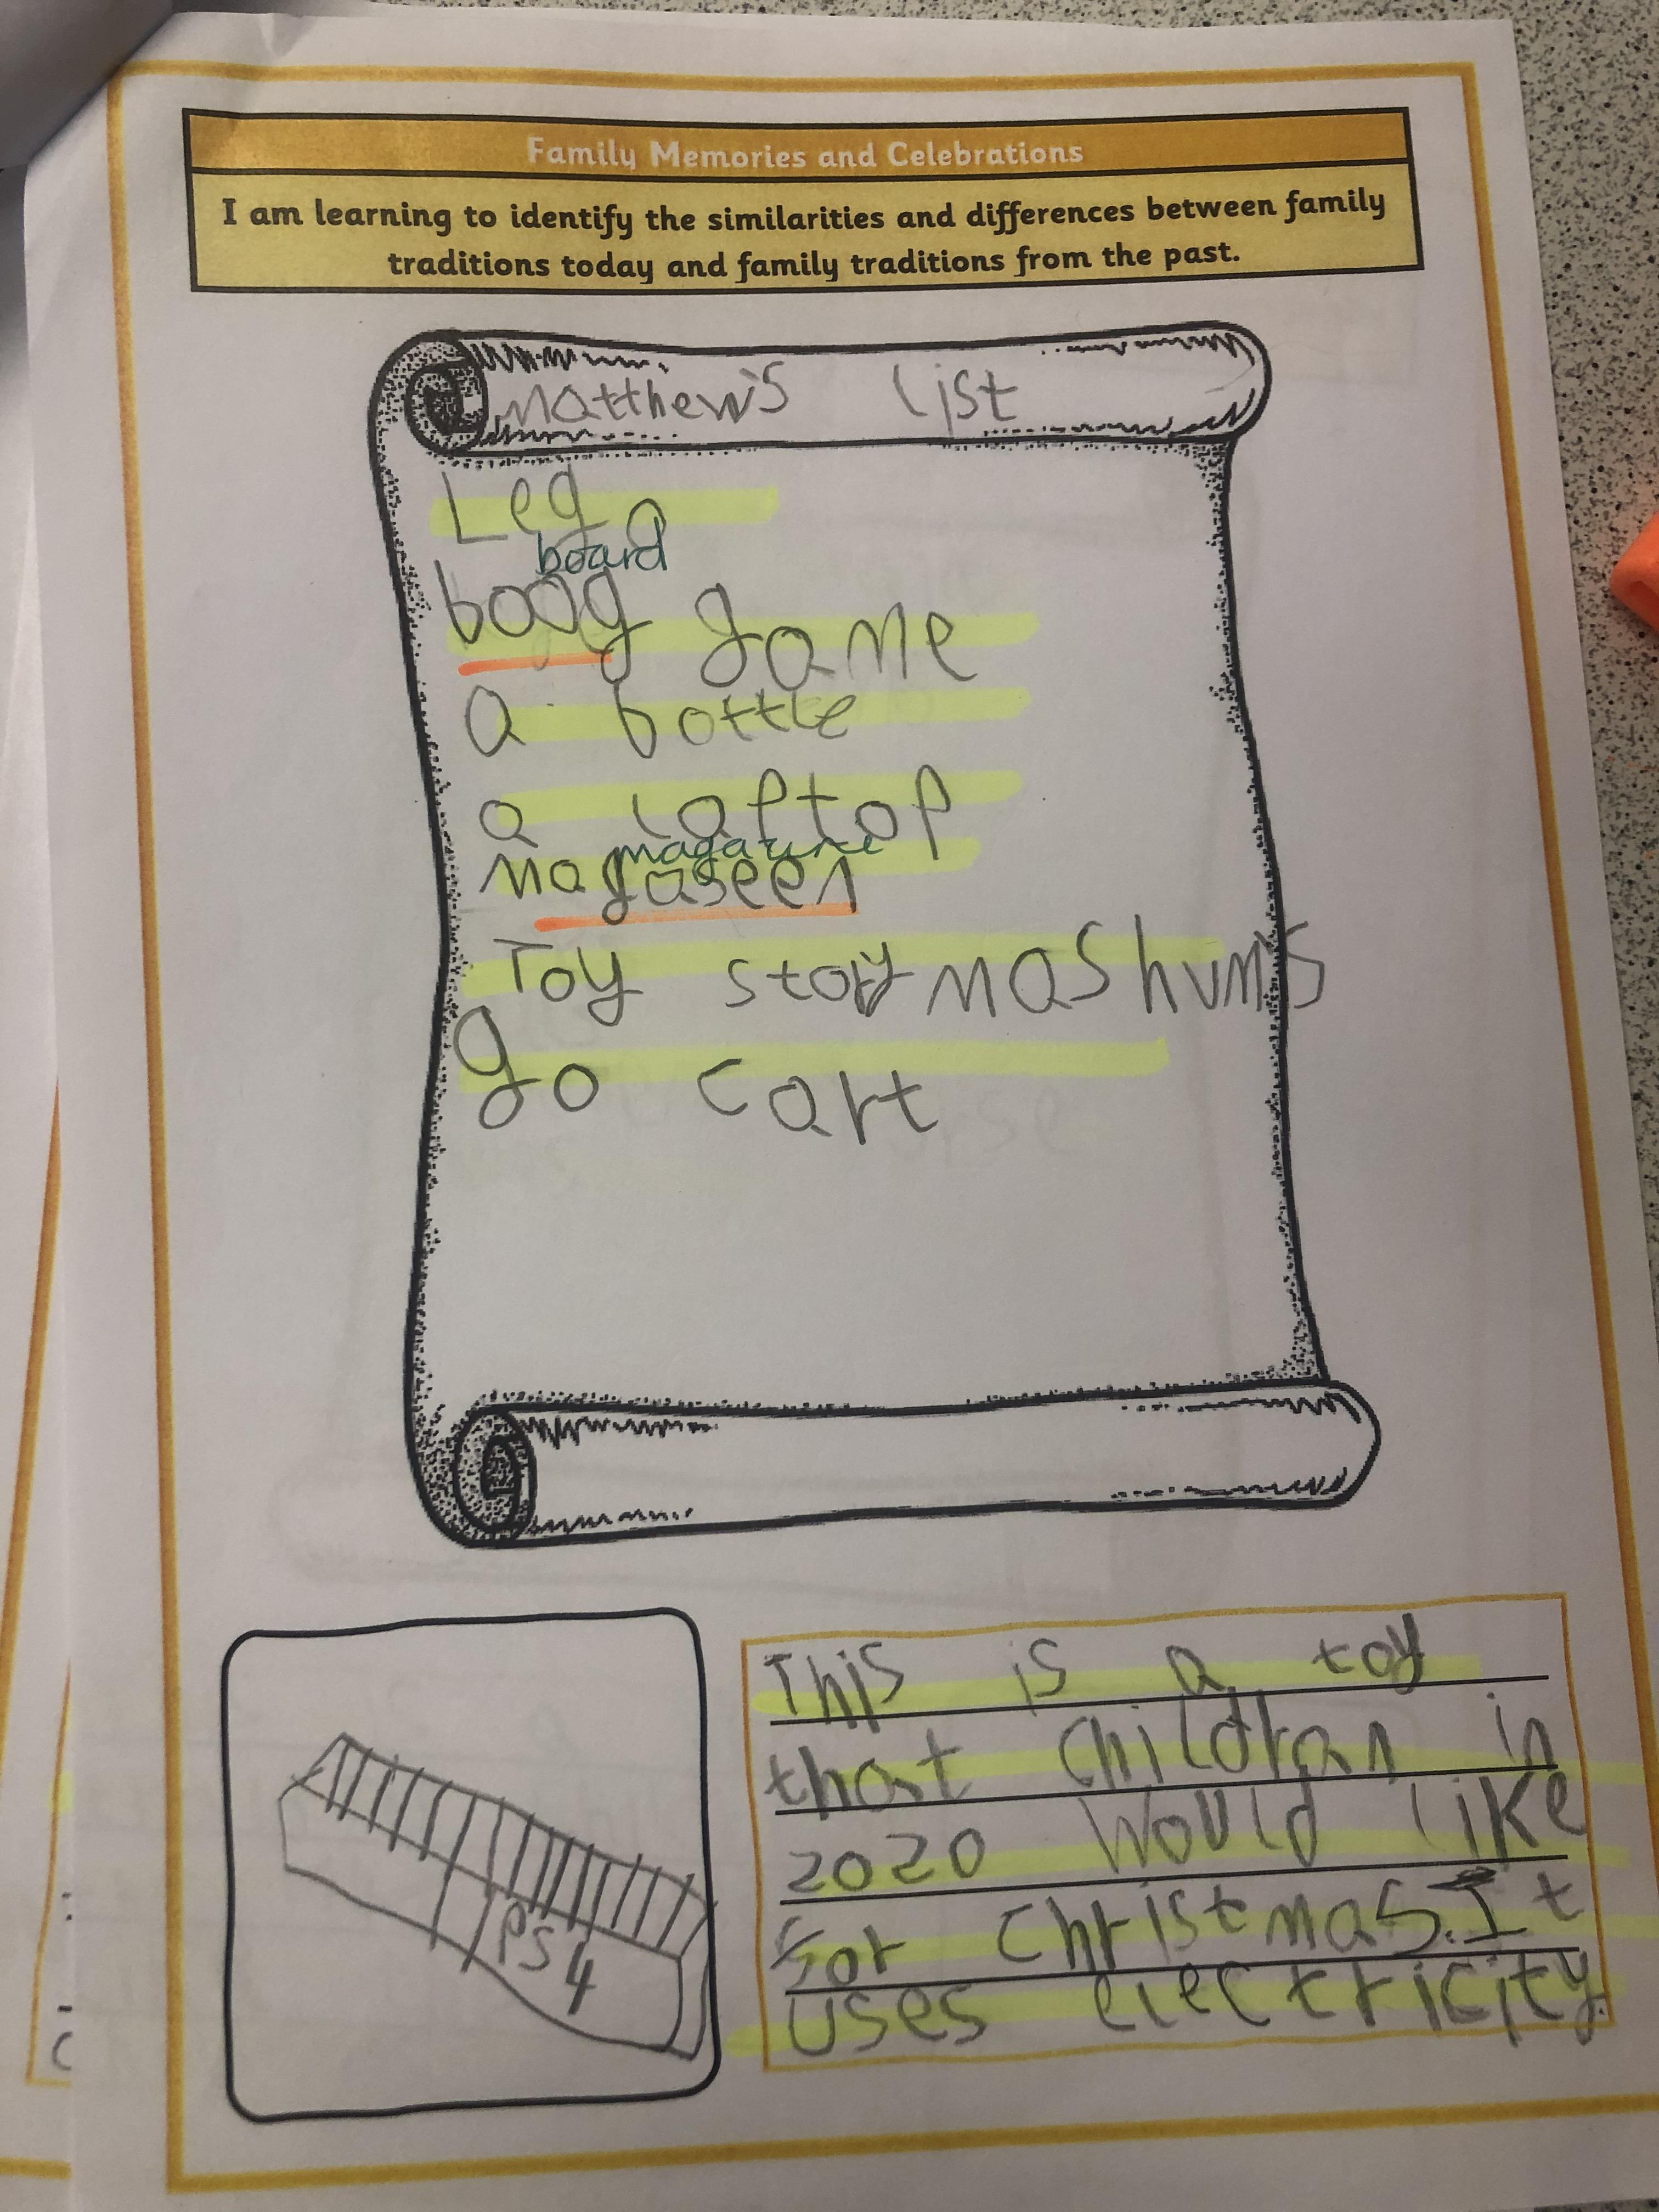 Family Memories and Celebrations
I am learning to identify the similarities and differences between family
traditions today and family traditions from the past.
Matthew's list
Lego
board
boog game
a bottle
a laptop
magazine
magaseen
Toy story mashums
go cart
PS4
This is a toy
that childran in
2020 Would like
For christmas. It
uses electricity.